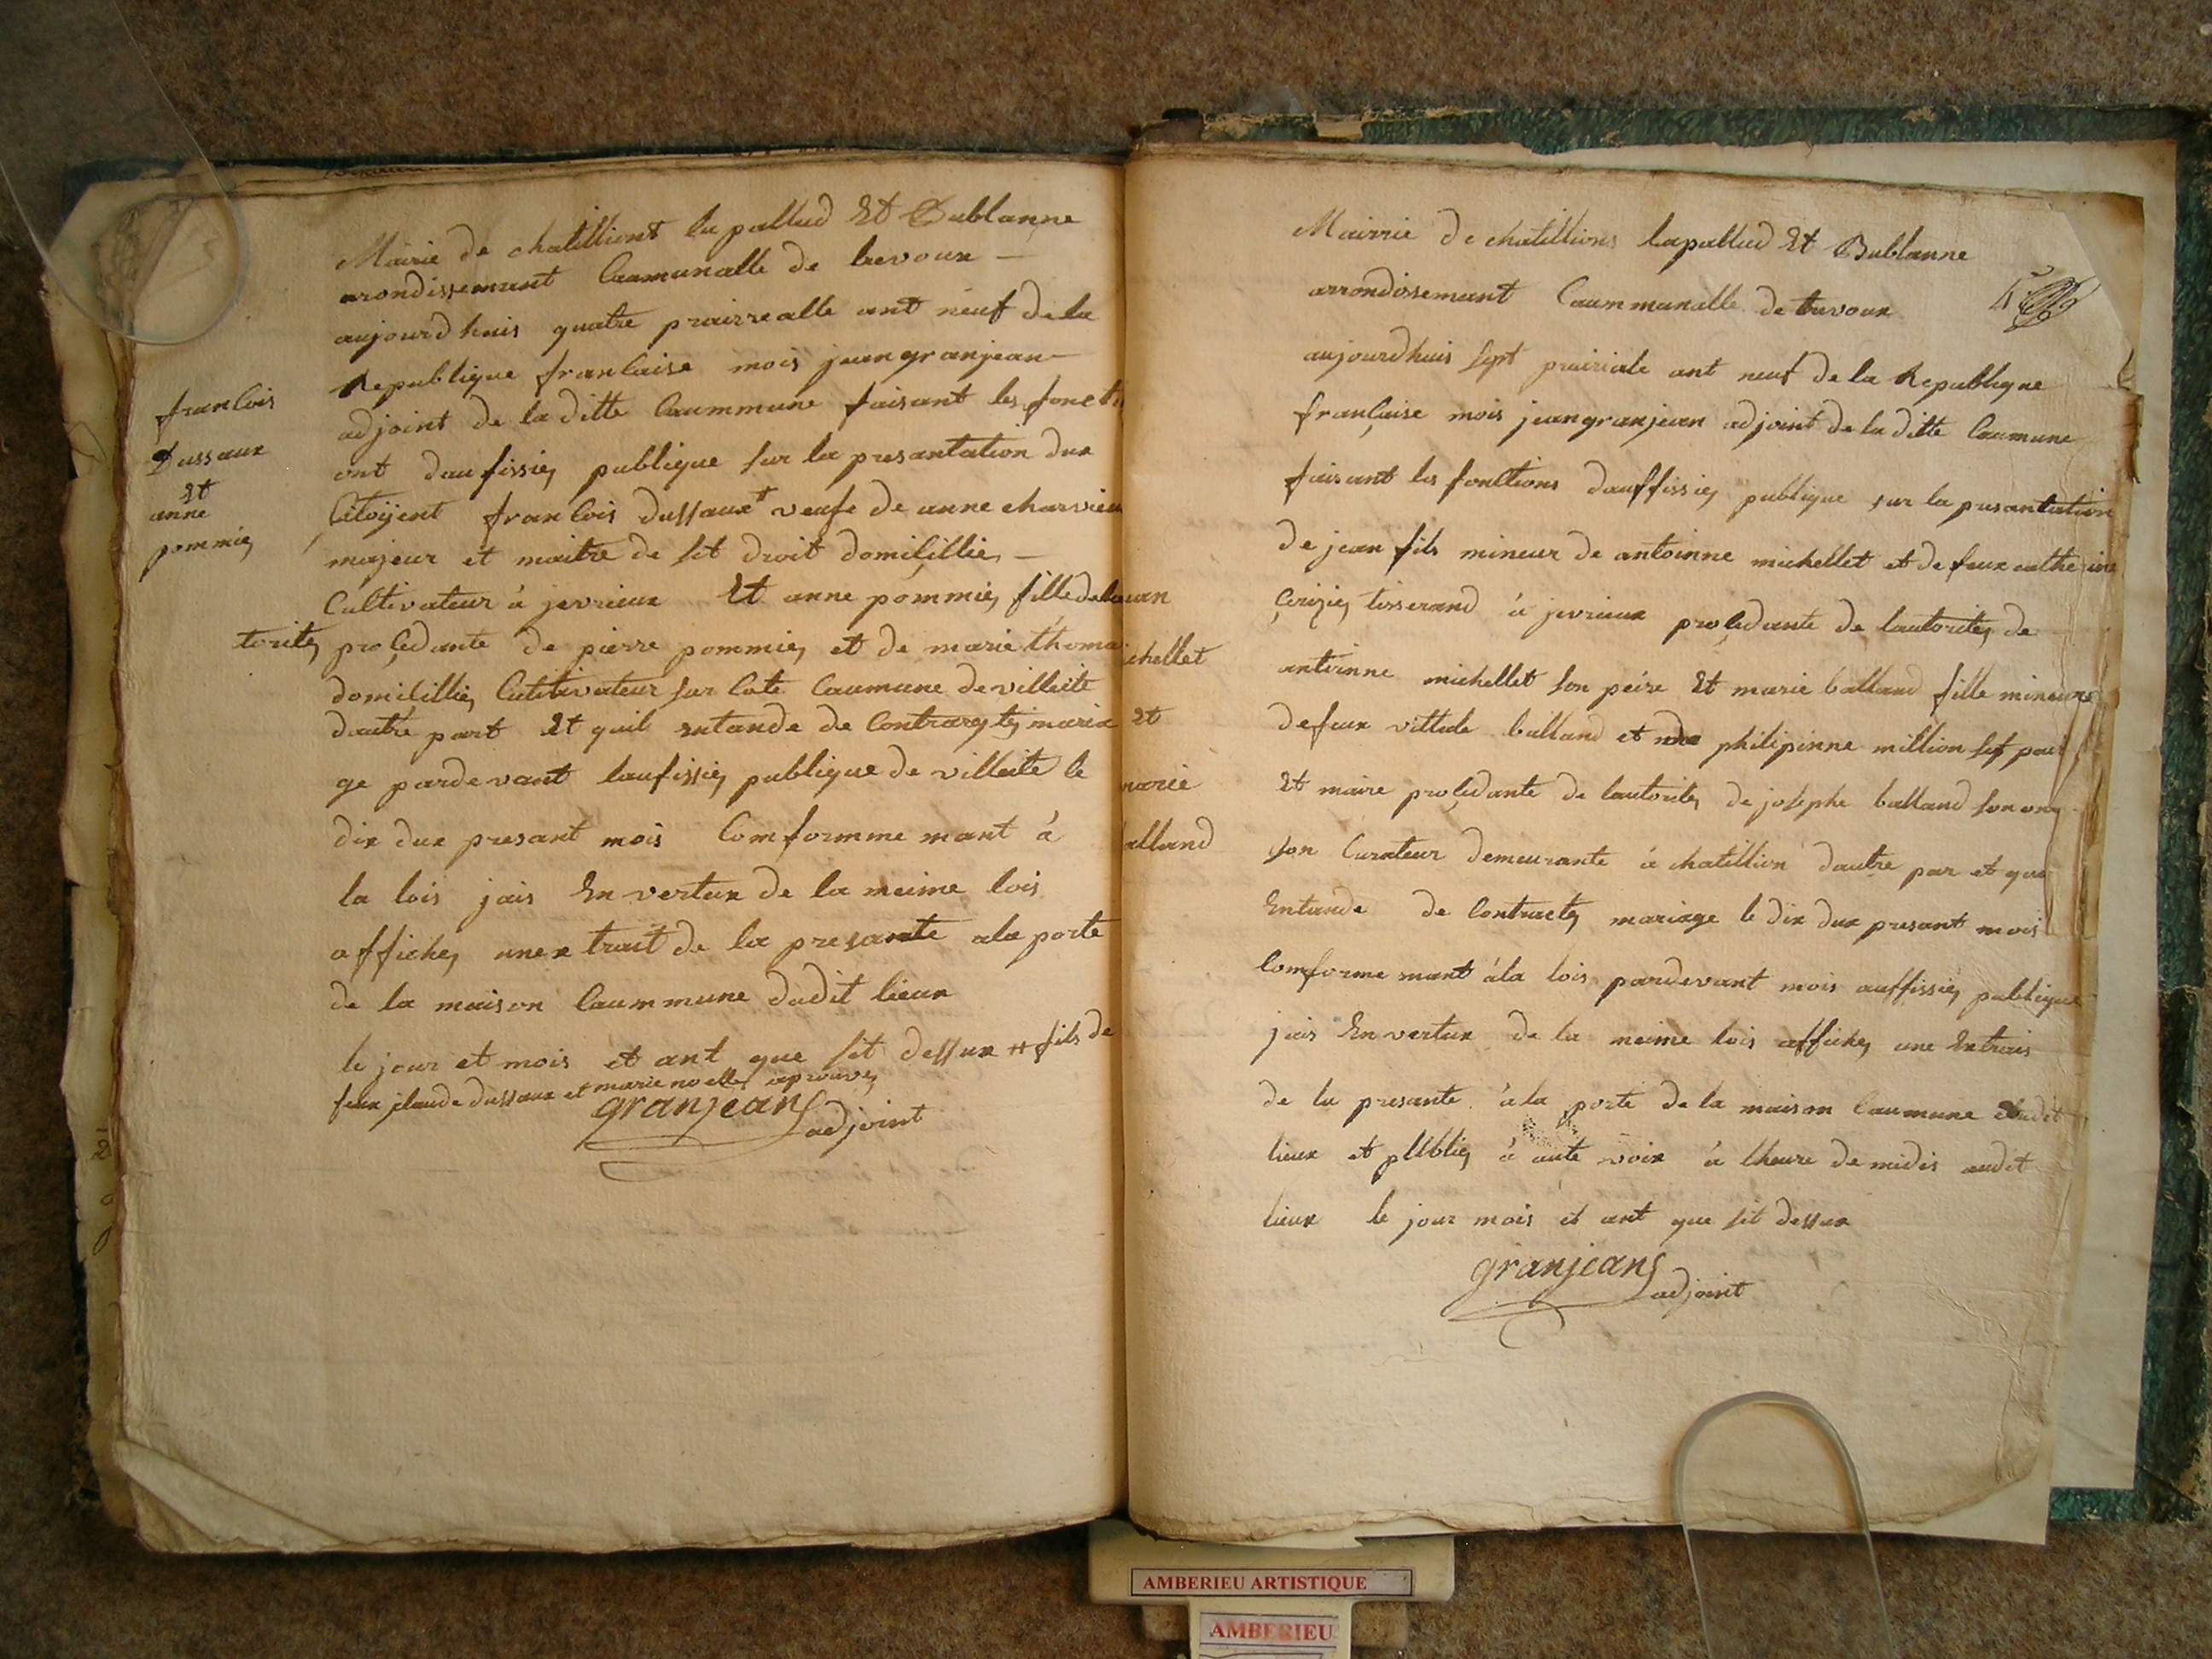 Mairie de chatilliont la pallud Et Bublanne
arondissement Caumunalle de trevoux —
aujourdhuis quatre prairrealle ant neuf de la
Republique francaise mois jean granjean —
adjoint de la ditte Caummune faisant les foncti
ont daufissier publique sur la presantation dux
Citoijent francois dussaux + veufe de anne charvieu
majeur et maitre de set droit domicillier —
Cultivateur à jevrieux Et anne pommier fille de lau
torite, procedante de pierre pommier et de marie thoma
domicillier Cultivateur sur late Caumune de villeite
dautre part Et quil entande de Contracyter maria
ge pardevant laufissier publique de villeite le
dix dux presant mois Comformme mant à
la lois jais En vertux de la meime lois
afficher unex trait de la presante ala porte
de la maison Caummune dudit lieux
le jour et mois et ant que set dessux # fils de
feux claude dussaux et marie noelle, aprouver
granjean
adjoint
francois
Dussaux
Et
anne
pommier
Mairrie de chatillions lapallud Et Bublanne
arrondissemeent Caummunalle de trevoux
aujourdhuis sept prairiale ant neuf de la Republique
française mois jeangranjean adjoint de la ditte Caumune
faisant les fonctions dauffissier publique sur la presantation
de jean fils mineur de antoinne michellet et de feux catherine
tisserand à jevrieux procedante de lautorite, de
antoinne michellet son peire Et marie balland fille mineure
defeux vittale balland et philipinne million set pai
Et maire procedante de lautorite, de josephe balland son onc
son Curateur demeurante à chatillion dautre par et que
Entande de Contracter mariage le dix dux presant mois
Comforme mant àla lois pardevant mois auffissier publique
jais En vertux de la meime lois afficher une Extrais
de la presante à la porte de la maison Caumune dudit
lieux et pUblier à aute voix à lheure de midis audit
lieux le jour mois et ant que set dessux
granjean
adjoint
ean
ichellet
Et
marie
alland
AMBERIEU ARTISTIQUE
AMBERIEU